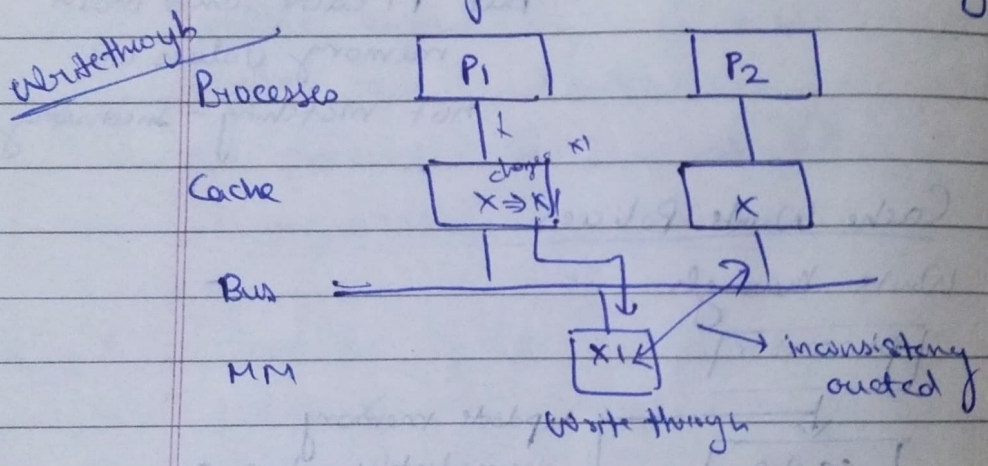 Writethrough
Processes P1 P2
change X1
Cache X⇒X1 X
Bus
X1
inconsisteny
MM
write through